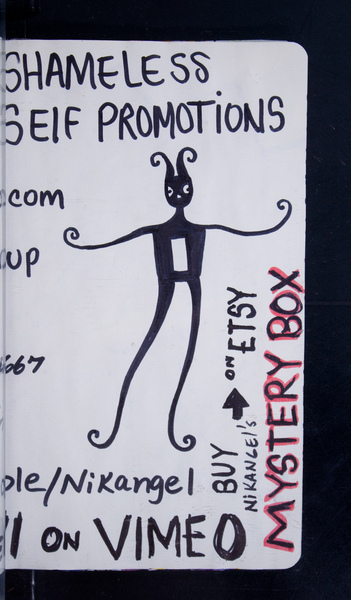 SHAMELESS
SELF PROMOTIONS
.com
up
667
ple/Nikangel
ON VIMEO
BUY
NIKANGEL'S
ON ETSY
MYSTERY BOX